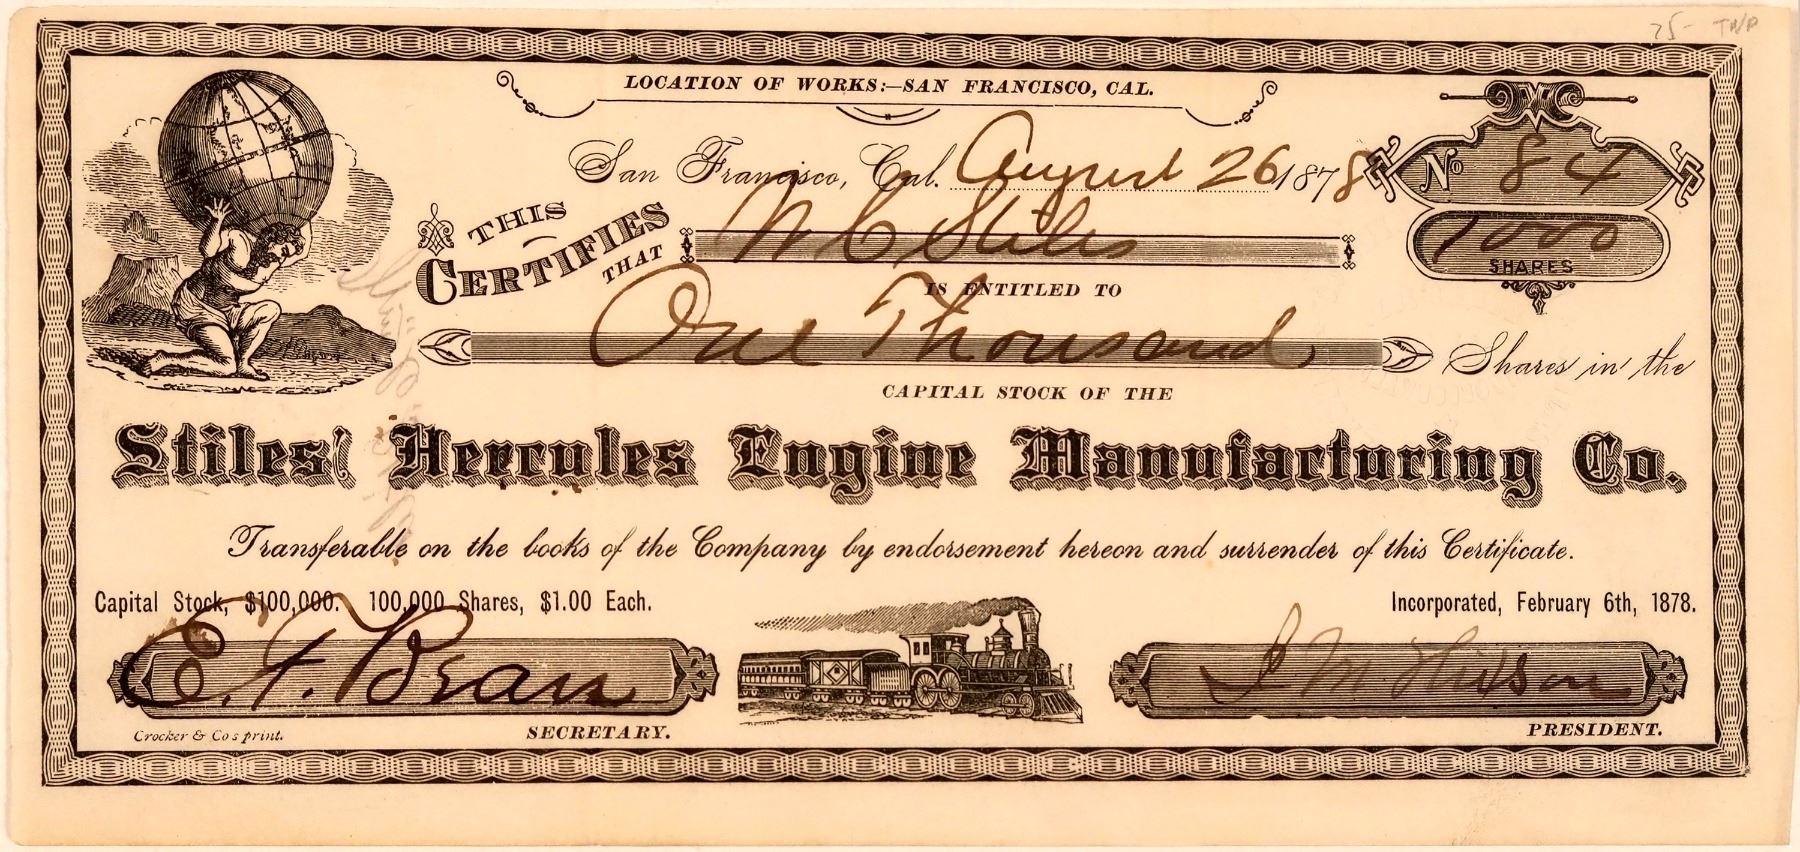 75- TN/P
LOCATION OF WORKS:—SAN FRANCISCO, CAL.
San Francisco, Cal. August 26 1878
No 84
THIS CERTIFIES THAT N C Stiles
1000 SHARES
IS ENTITLED TO
One Thousand Shares in the
CAPITAL STOCK OF THE
Stiles' Hercules Engine Manufacturing Co.
Transferable on the books of the Company by endorsement hereon and surrender of this Certificate.
Capital Stock, $100,000. 100,000 Shares, $1.00 Each.
Incorporated, February 6th, 1878.
E. F. Bean
Crocker & Cos print.
SECRETARY.
PRESIDENT.